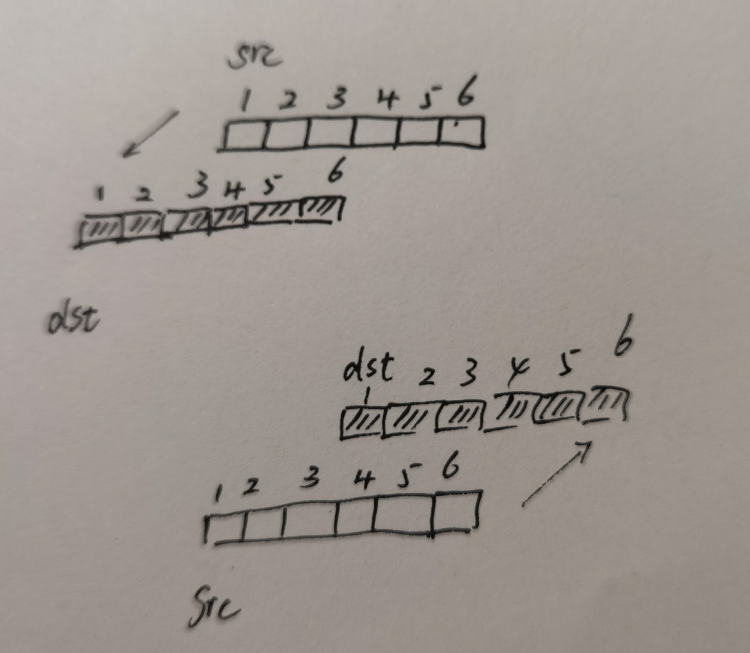 src
1 2 3 4 5 6
1 2 3 4 5 6
dst
dst
1 2 3 4 5 6
1 2 3 4 5 6
src